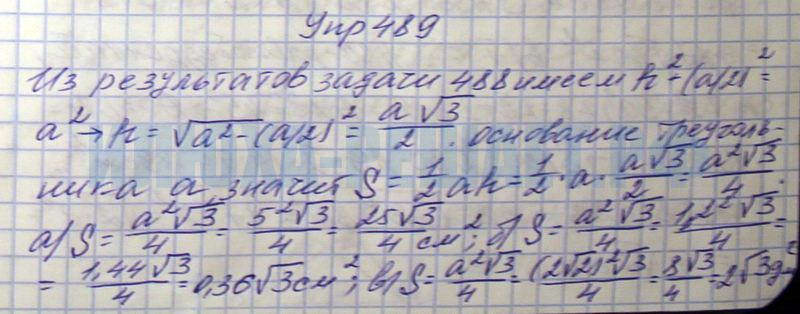 Упр 489
Из результатов задачи 488 имеем h²+(a/2)²=
a²→h=√a²-(a/2)²=a√3/2. основание треуголь-
ника a, значит S=1/2ah=1/2·a·a√3/2=a²√3/4.
а) S=a²√3/4=5²√3/4=25√3/4 см²; б) S=a²√3/4=1,2²√3/4=
=1,44√3/4=0,36√3см²; в) S=a²√3/4=(2√2)²√3/4=8√3/4=2√3д